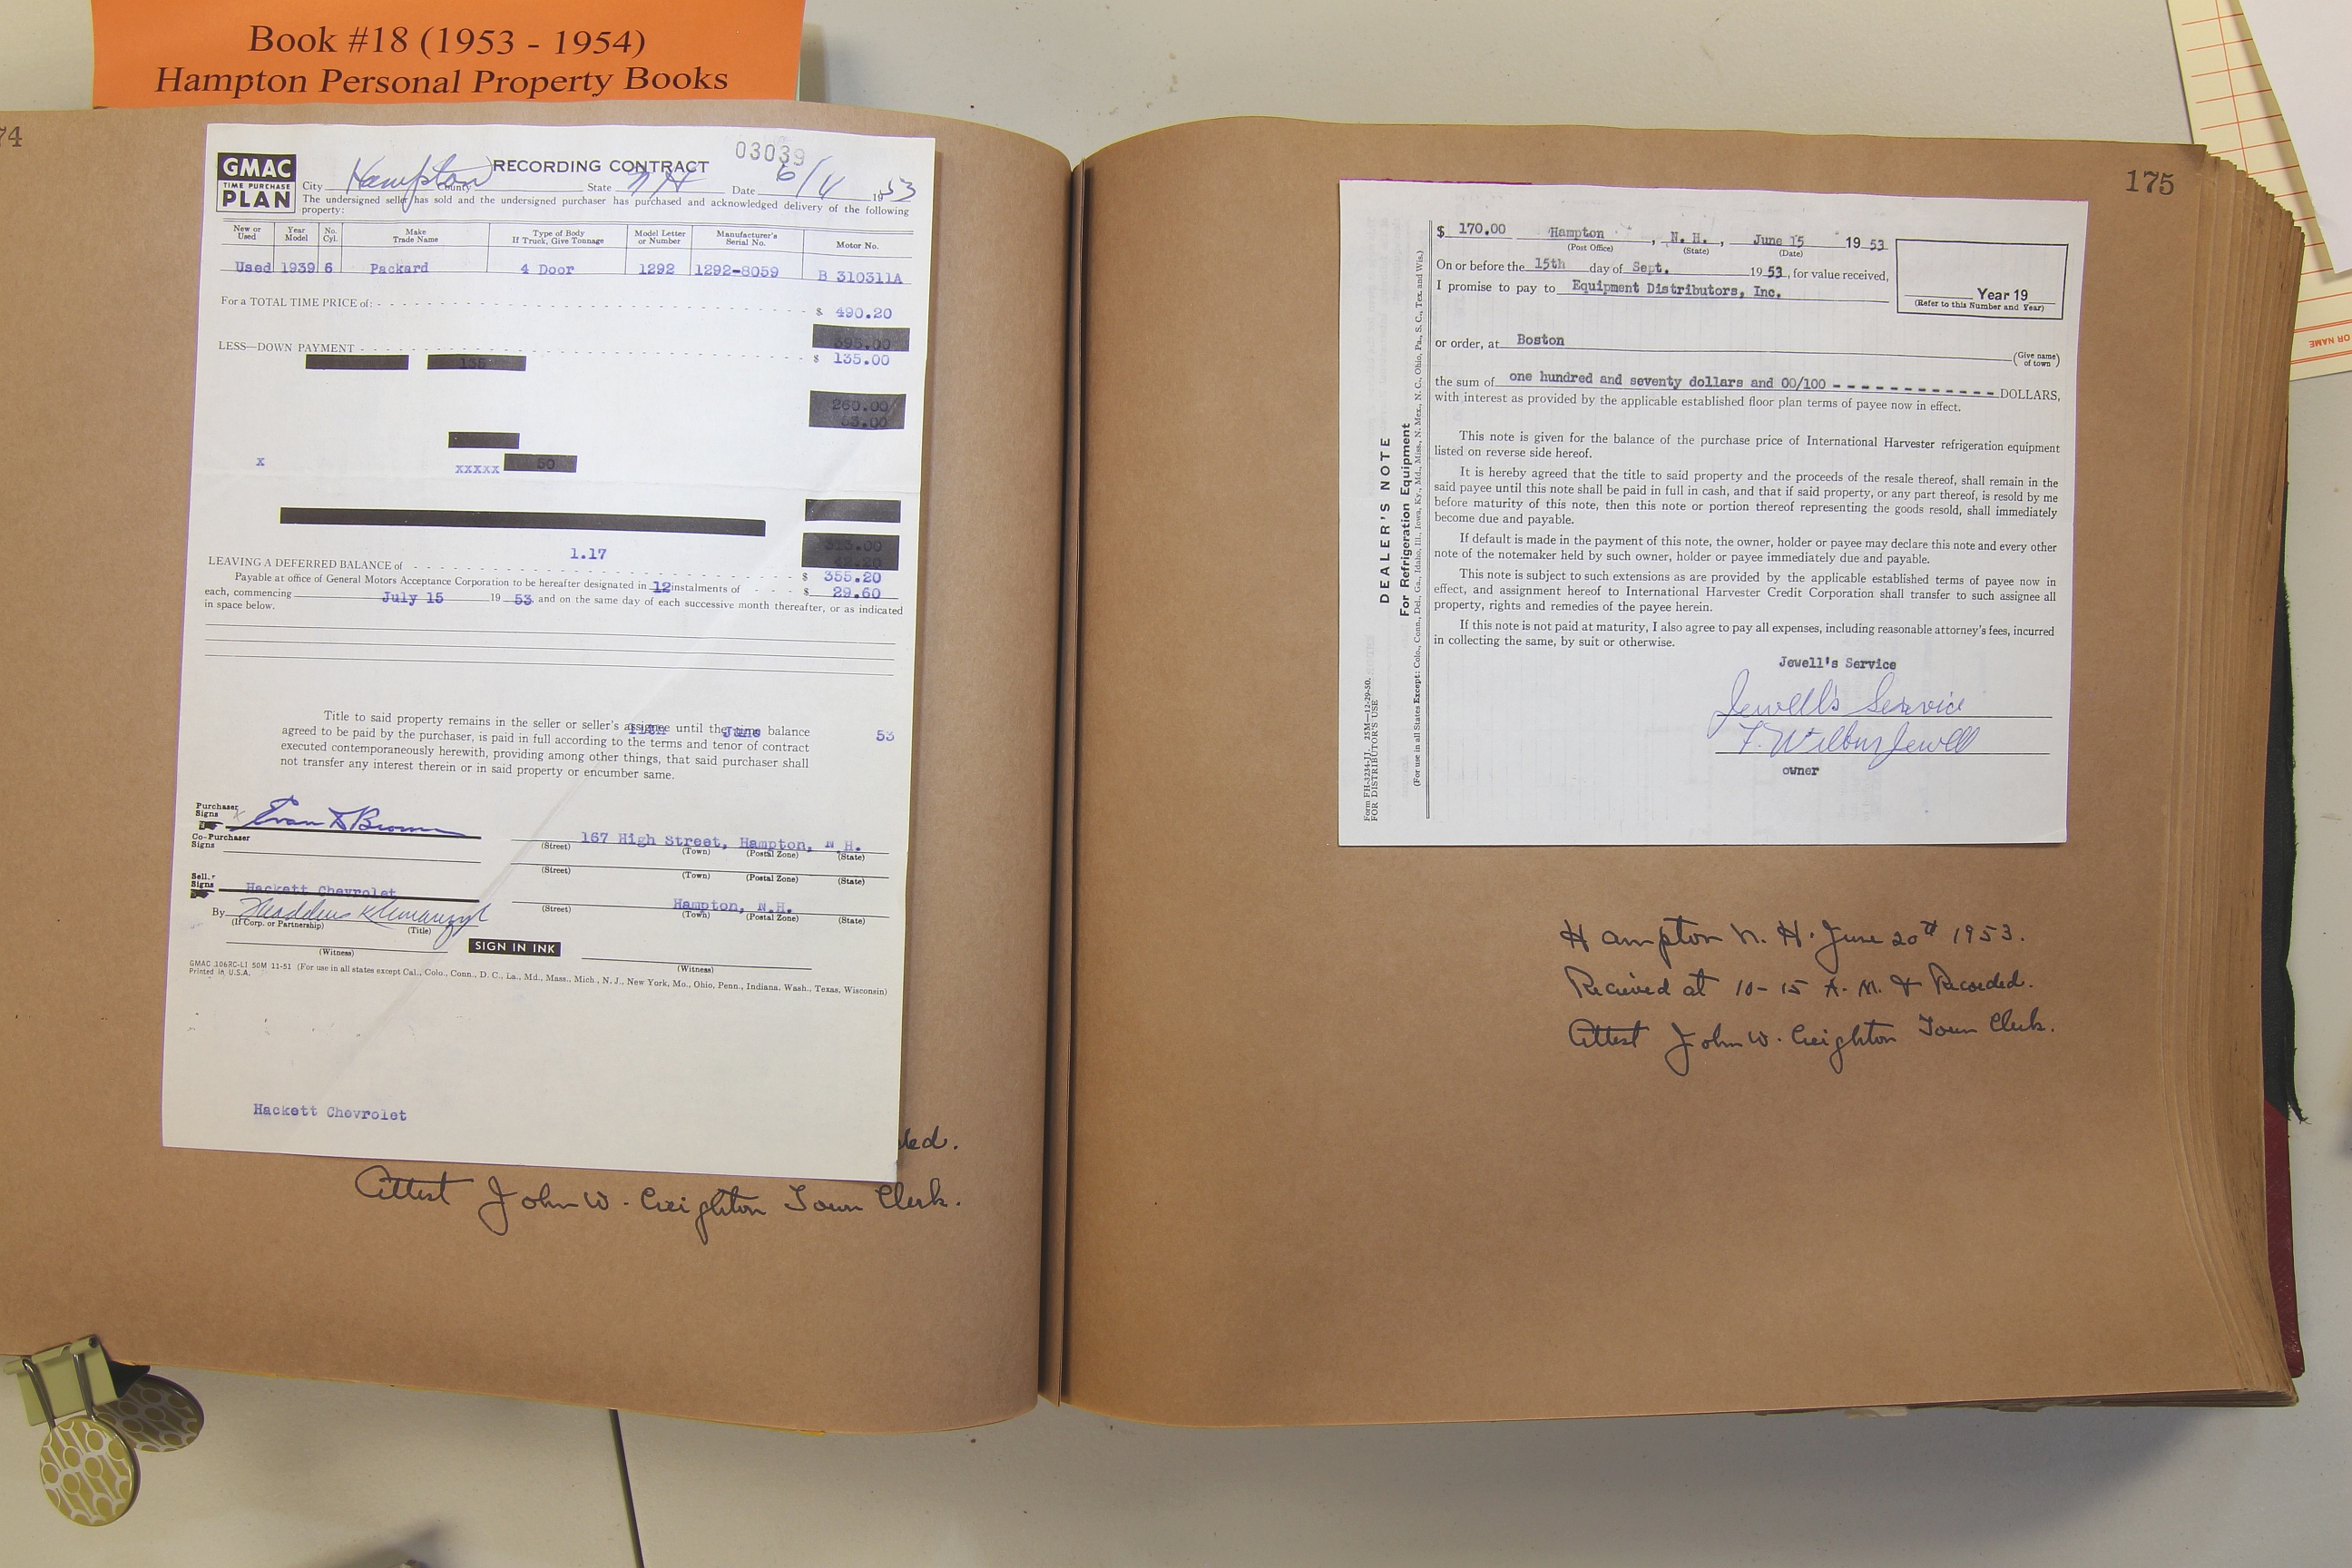 Book #18 (1953 - 1954)
Hampton Personal Property Books
74
GMAC
TIME PURCHASE
PLAN
RECORDING CONTRACT
03039
City Hampton County State N H Date 6/11 1953
The undersigned seller has sold and the undersigned purchaser has purchased and acknowledged delivery of the following
property:
New or Used Year Model No. Cyl. Make Trade Name Type of Body If Truck, Give Tonnage Model Letter or Number Manufacturer's Serial No. Motor No.
Used 1939 6 Packard 4 Door 1292 1292-8059 B 310311A
For a TOTAL TIME PRICE of: $ 490.20
395.00
LESS—DOWN PAYMENT $ 135.00
135
260.00
53.00
x xxxxx 50
313.00
1.17
LEAVING A DEFERRED BALANCE of $ 355.20
Payable at office of General Motors Acceptance Corporation to be hereafter designated in 12 instalments of $ 29.60
each, commencing July 15 19 53 and on the same day of each successive month thereafter, or as indicated
in space below.
Title to said property remains in the seller or seller's assignee until the time balance
11th June 53
agreed to be paid by the purchaser, is paid in full according to the terms and tenor of contract
executed contemporaneously herewith, providing among other things, that said purchaser shall
not transfer any interest therein or in said property or encumber same.
Purchaser
Signs x Evan D Brown 167 High Street, Hampton, N H.
(Street) (Town) (Postal Zone) (State)
Co-Purchaser
Signs
(Street) (Town) (Postal Zone) (State)
Seller
Signs Hackett Chevrolet Hampton, N.H.
(Street) (Town) (Postal Zone) (State)
By Thaddeus
(If Corp. or Partnership) (Title)
SIGN IN INK
(Witness) (Witness)
GMAC 106RC-LI 50M 11-51 (For use in all states except Cal., Colo., Conn., D. C., La., Md., Mass., Mich., N. J., New York, Mo., Ohio, Penn., Indiana, Wash., Texas, Wisconsin)
Printed in U.S.A.
Hackett Chevrolet
ded.
Attest John W. Creighton Town Clerk.
175
$ 170.00 Hampton, N. H., June 15 19 53
(Post Office) (State) (Date)
On or before the 15th day of Sept. 19 53, for value received,
I promise to pay to Equipment Distributors, Inc.
Year 19
(Refer to this Number and Year)
or order, at Boston
(Give name of town)
the sum of one hundred and seventy dollars and 00/100 - - - - - - - - - - - - DOLLARS,
with interest as provided by the applicable established floor plan terms of payee now in effect.
This note is given for the balance of the purchase price of International Harvester refrigeration equipment
listed on reverse side hereof.
It is hereby agreed that the title to said property and the proceeds of the resale thereof, shall remain in the
said payee until this note shall be paid in full in cash, and that if said property, or any part thereof, is resold by me
before maturity of this note, then this note or portion thereof representing the goods resold, shall immediately
become due and payable.
If default is made in the payment of this note, the owner, holder or payee may declare this note and every other
note of the notemaker held by such owner, holder or payee immediately due and payable.
This note is subject to such extensions as are provided by the applicable established terms of payee now in
effect, and assignment hereof to International Harvester Credit Corporation shall transfer to such assignee all
property, rights and remedies of the payee herein.
If this note is not paid at maturity, I also agree to pay all expenses, including reasonable attorney's fees, incurred
in collecting the same, by suit or otherwise.
Jewell's Service
Jewell's Service
F. Wilbur Jewell
owner
DEALER'S NOTE
For Refrigeration Equipment
(For use in all States Except: Colo., Conn., Del., Ga., Idaho, Ill., Iowa, Ky., Md., Miss., N. Mex., N. C., Ohio, Pa., S. C., Tex. and Wis.)
Form FH-3234-JJ. 25M—12-29-50.
FOR DISTRIBUTOR'S USE
Hampton N. H. June 20th 1953.
Recieved at 10-15 A. M. & Recorded.
Attest John W. Creighton Town Clerk.
OR NAME